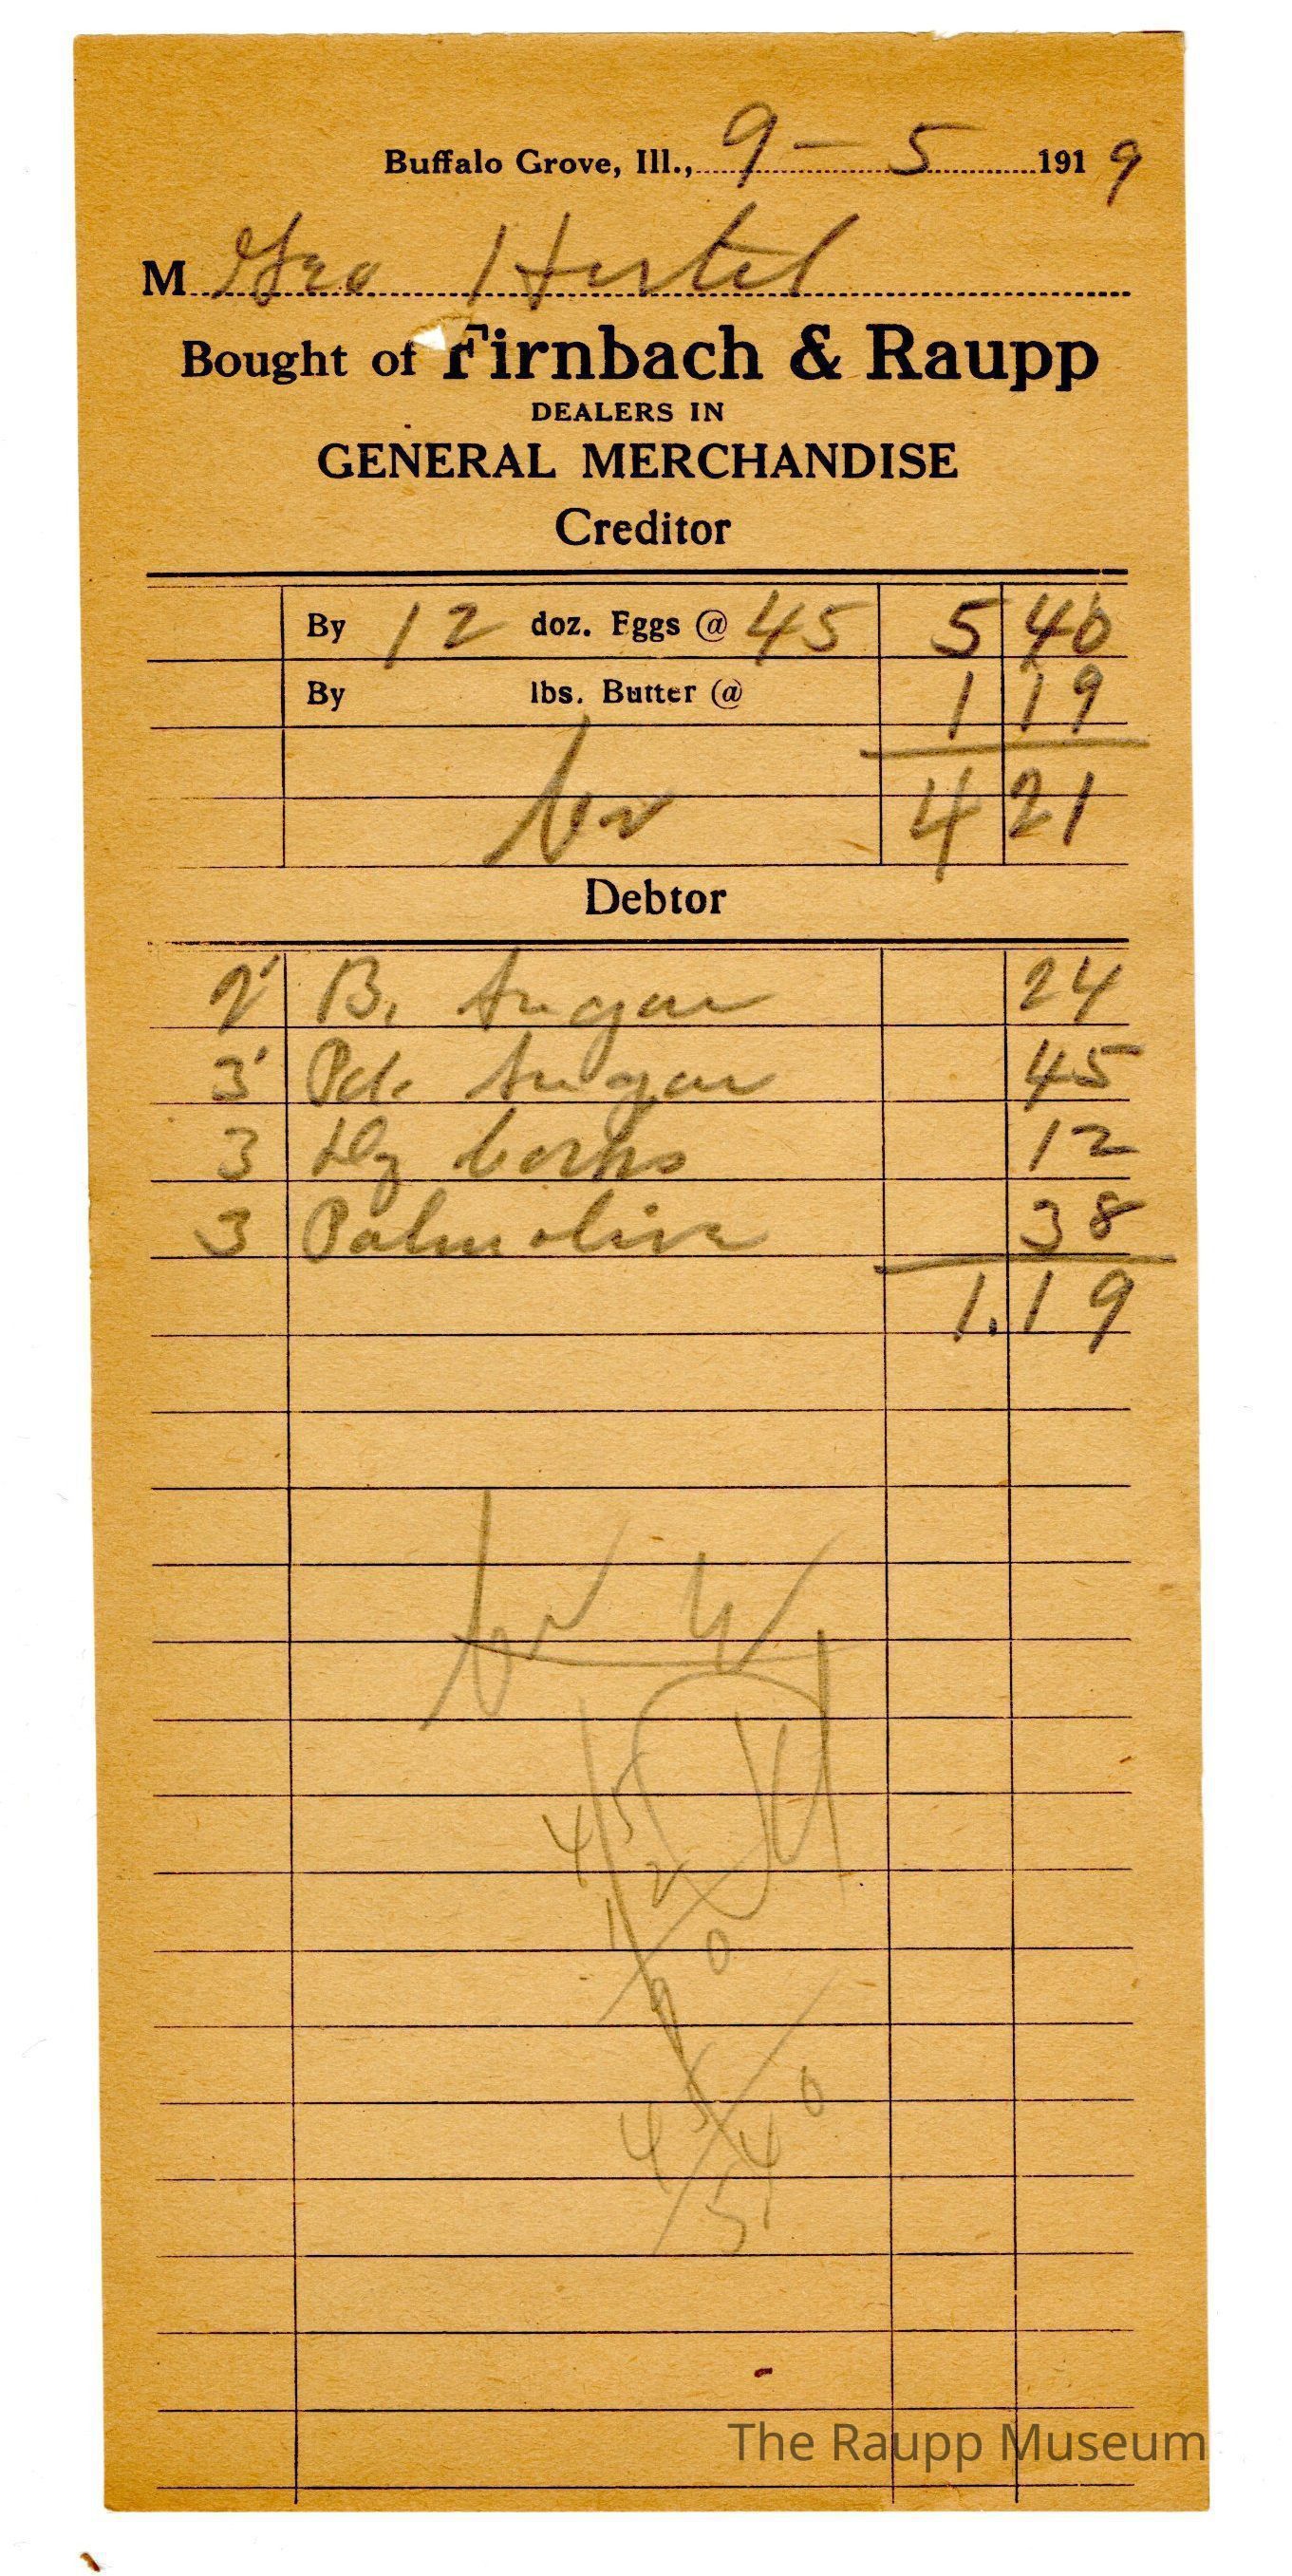 Buffalo Grove, Ill., 9 - 5 1919
M Geo Hertel
Bought of Firnbach & Raupp
DEALERS IN
GENERAL MERCHANDISE
Creditor
By 12 doz. Eggs @ 45 5 40
By lbs. Butter @ 1 19
4 21
Debtor
2 B. Sugar 24
3 Pd. Sugar 45
3 Dz 12
3 Palmolive 38
1.19
45
2
1 0
9
45 0
5 4
The Raupp Museum